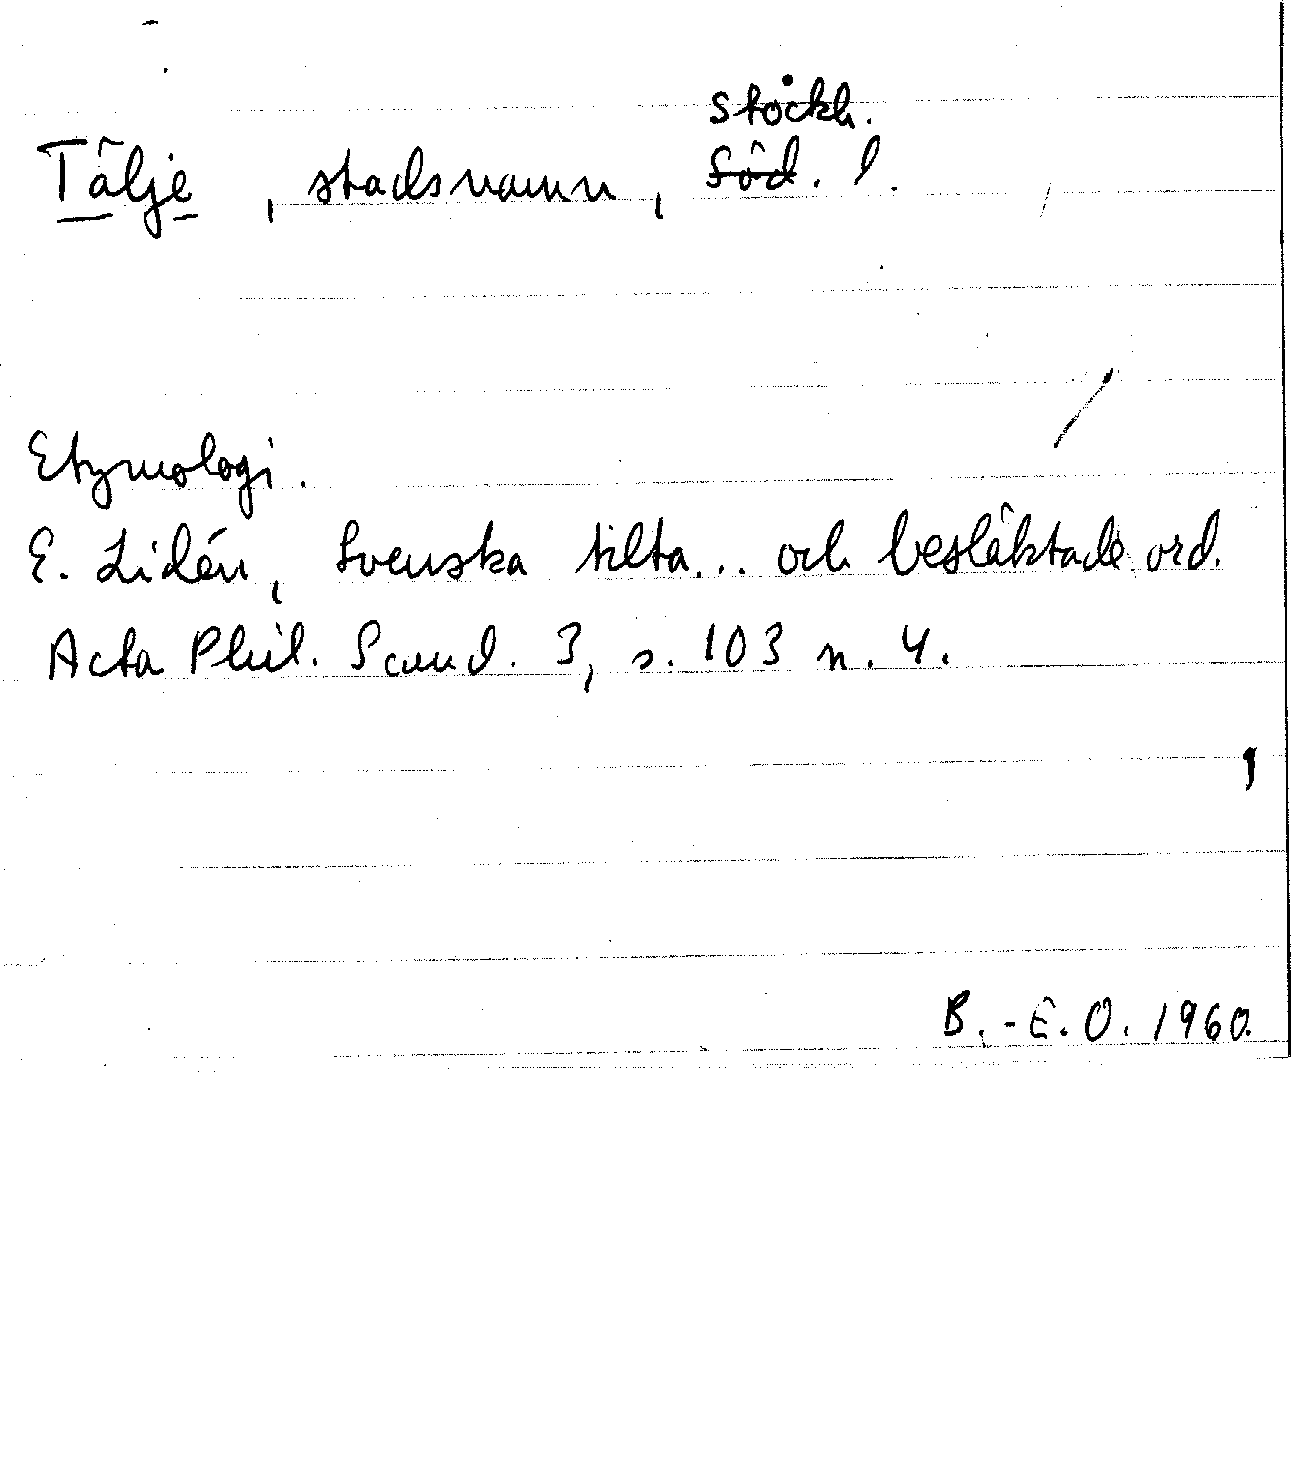 Stockh.
Tälje, stadsnamn, Söd. l.
Etymologi.
E. Lidén, Svenska tilta... och besläktade ord.
Acta Phil. Scand. 3, s. 103 n. 4.
B.-E.O. 1960.